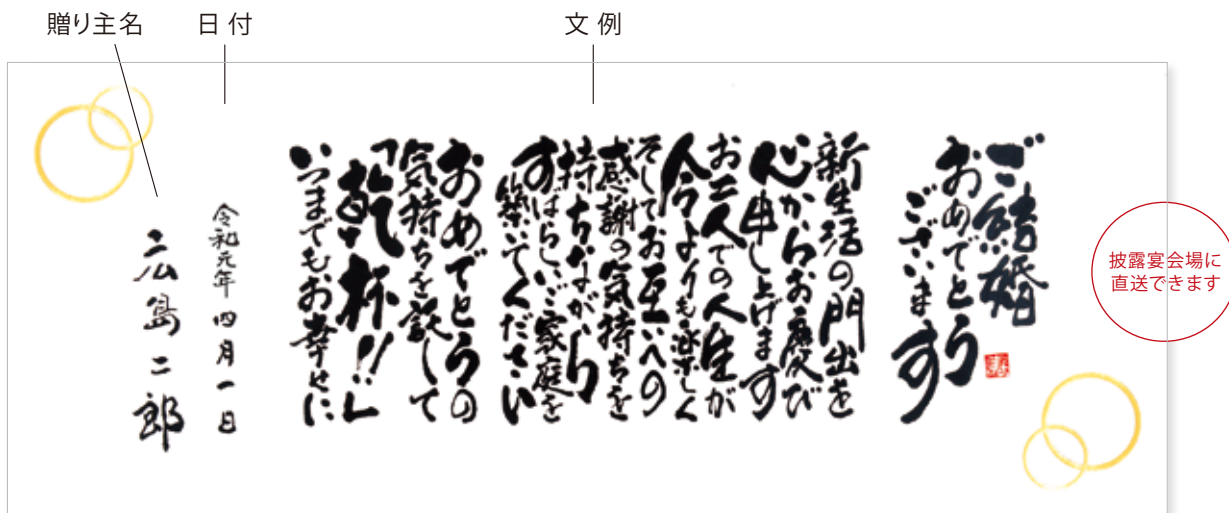 贈り主名
日付
文例
ご結婚
おめでとう
ございます
新生活の門出を
心からお慶び
申し上げます
お二人での人生が
今よりも楽しく
そしてお互いへの
感謝の気持ちを
持ちながら
すばらしいご家庭を
築いてください
おめでとうの
気持ちを託して
「乾杯!!」
いつまでもお幸せに
令和元年 四月一日
広島二郎
披露宴会場に
直送できます